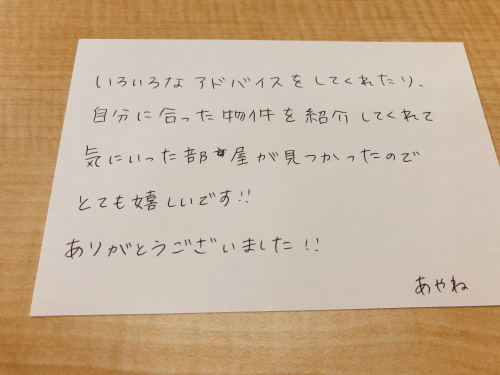 いろいろなアドバイスをしてくれたり、
自分に合った物件を紹介してくれて
気にいった部屋が見つかったので
とても嬉しいです!!
ありがとうございました!!
あやね